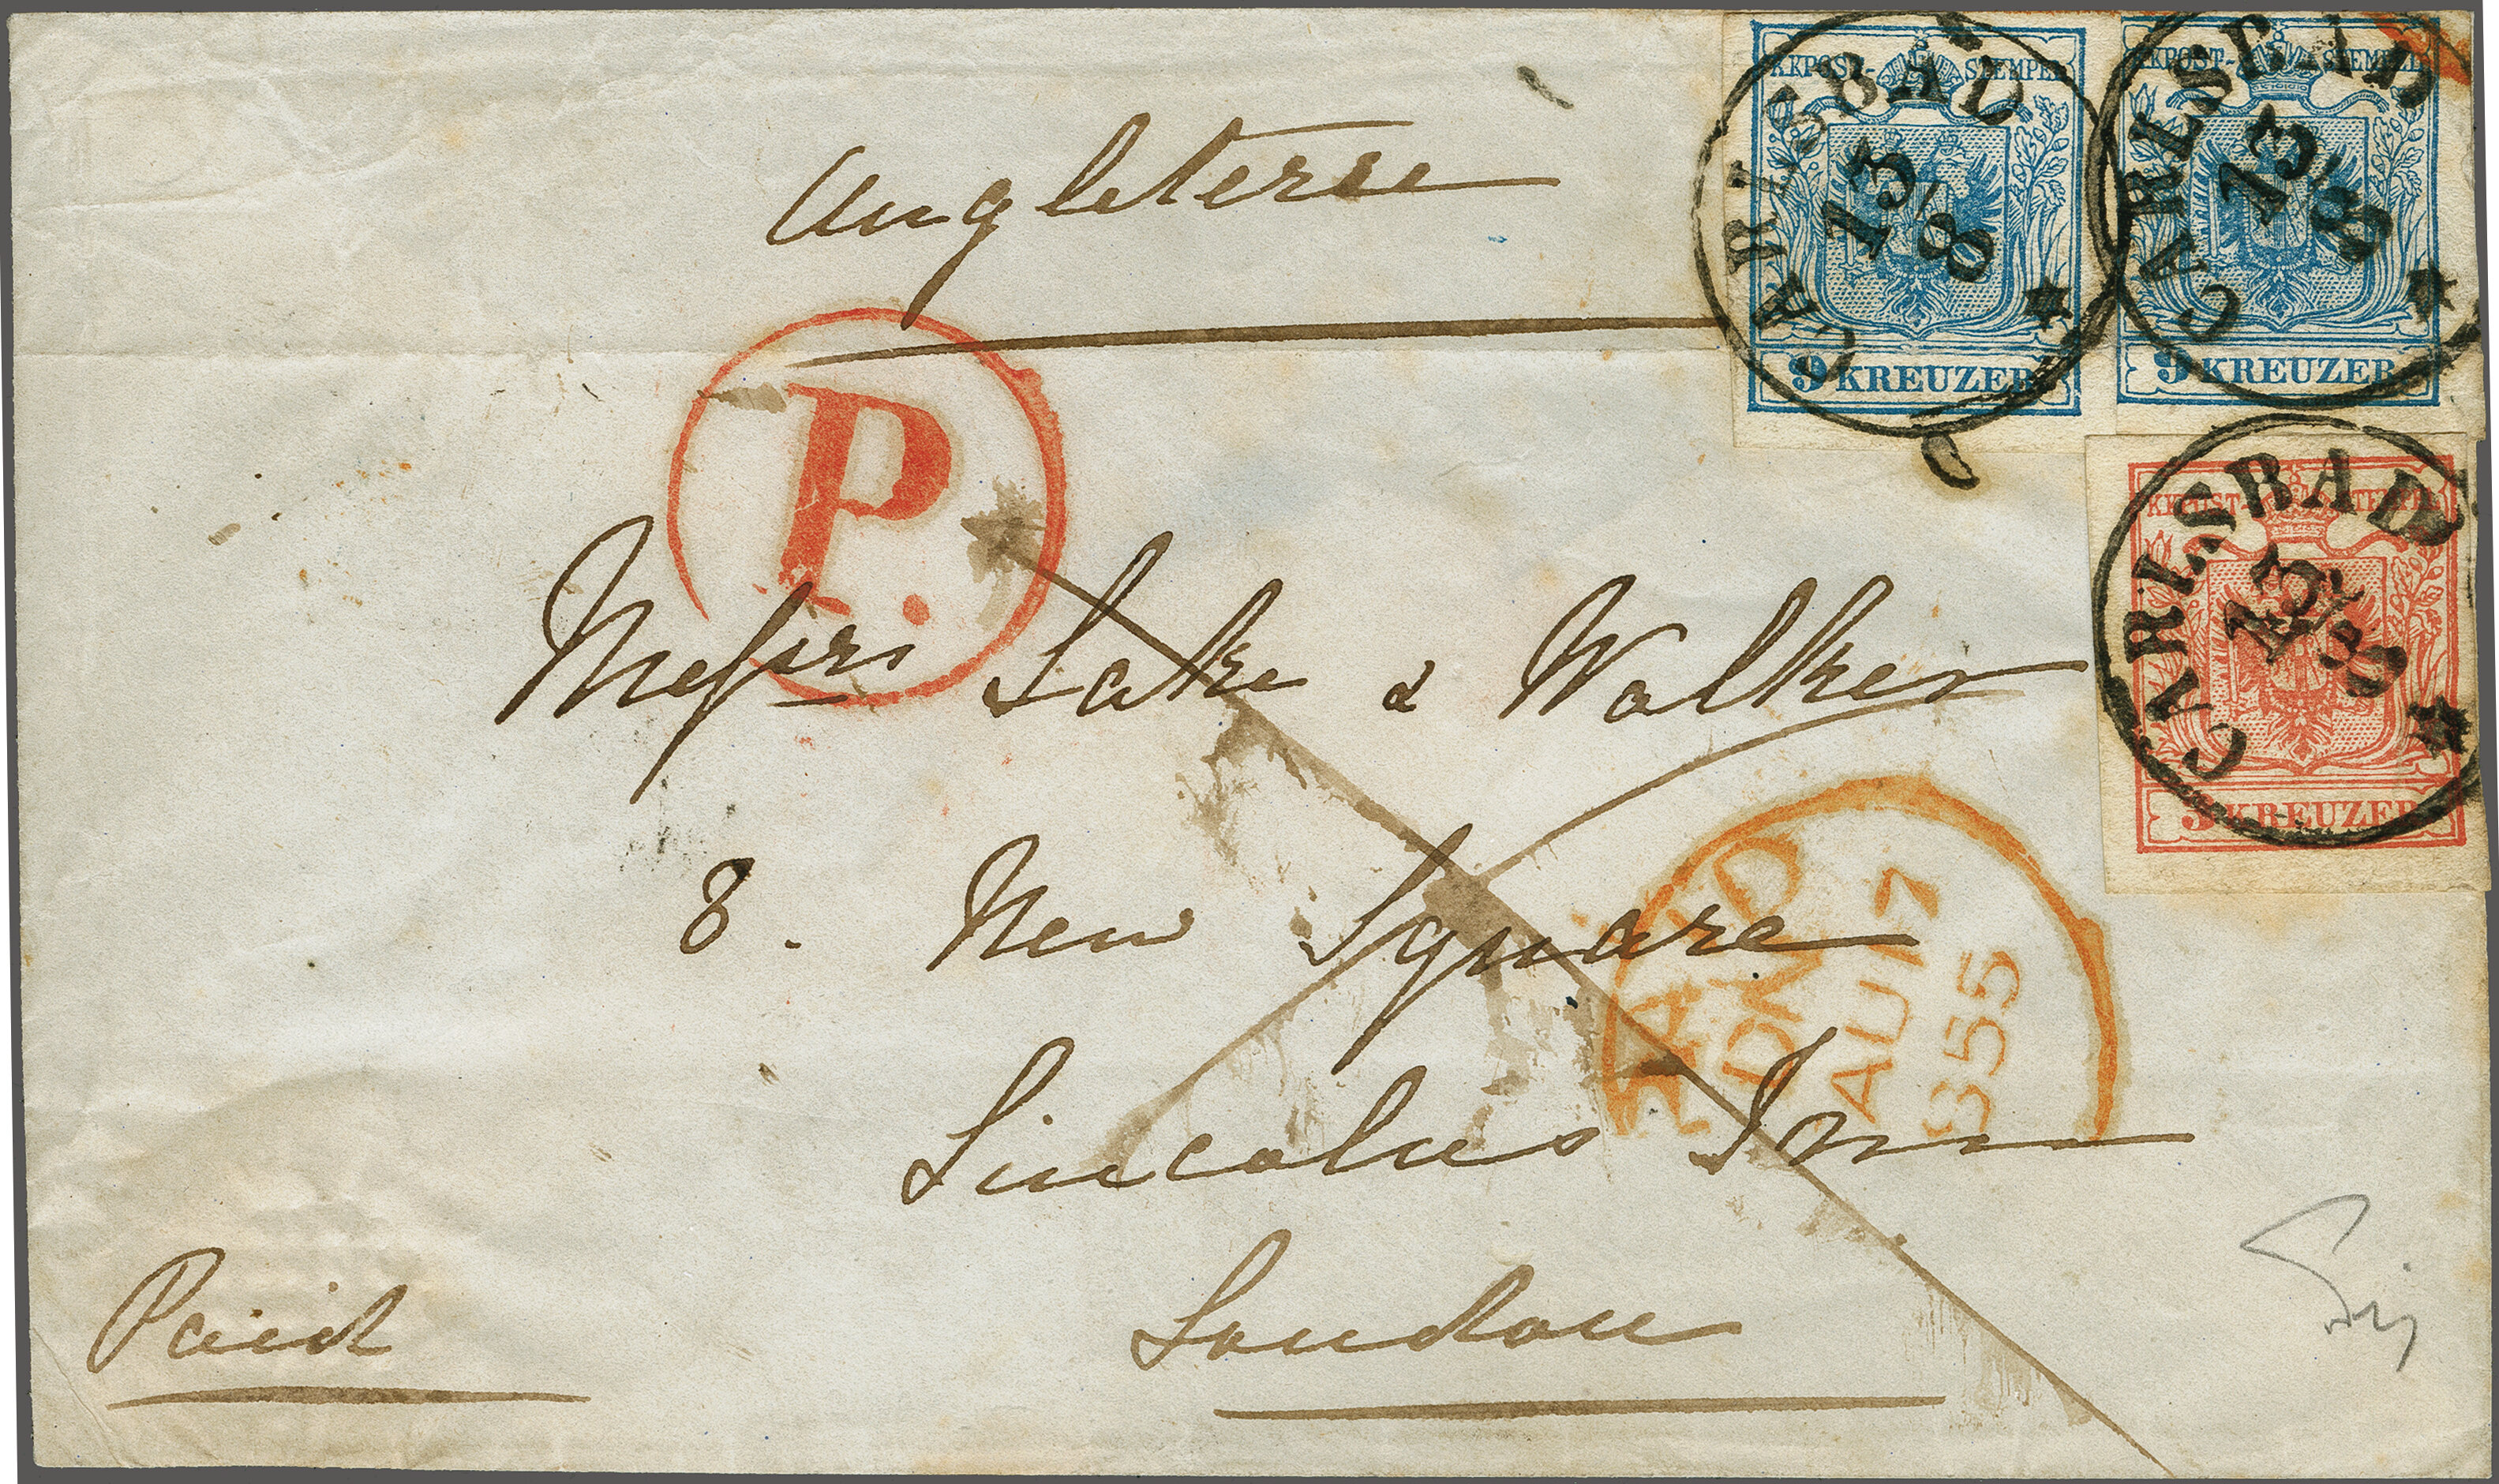 Angleterre
KKPOST-STEMPEL
9 KREUZER
CARLSBAD
13/8
KKPOST-STEMPEL
9 KREUZER
CARLSBAD
13/8
KKPOST-STEMPEL
3 KREUZER
CARLSBAD
13/8
P.
Messrs Lake & Walker
8. New Square
Lincolns Inn
London
Paid
AU 17
855